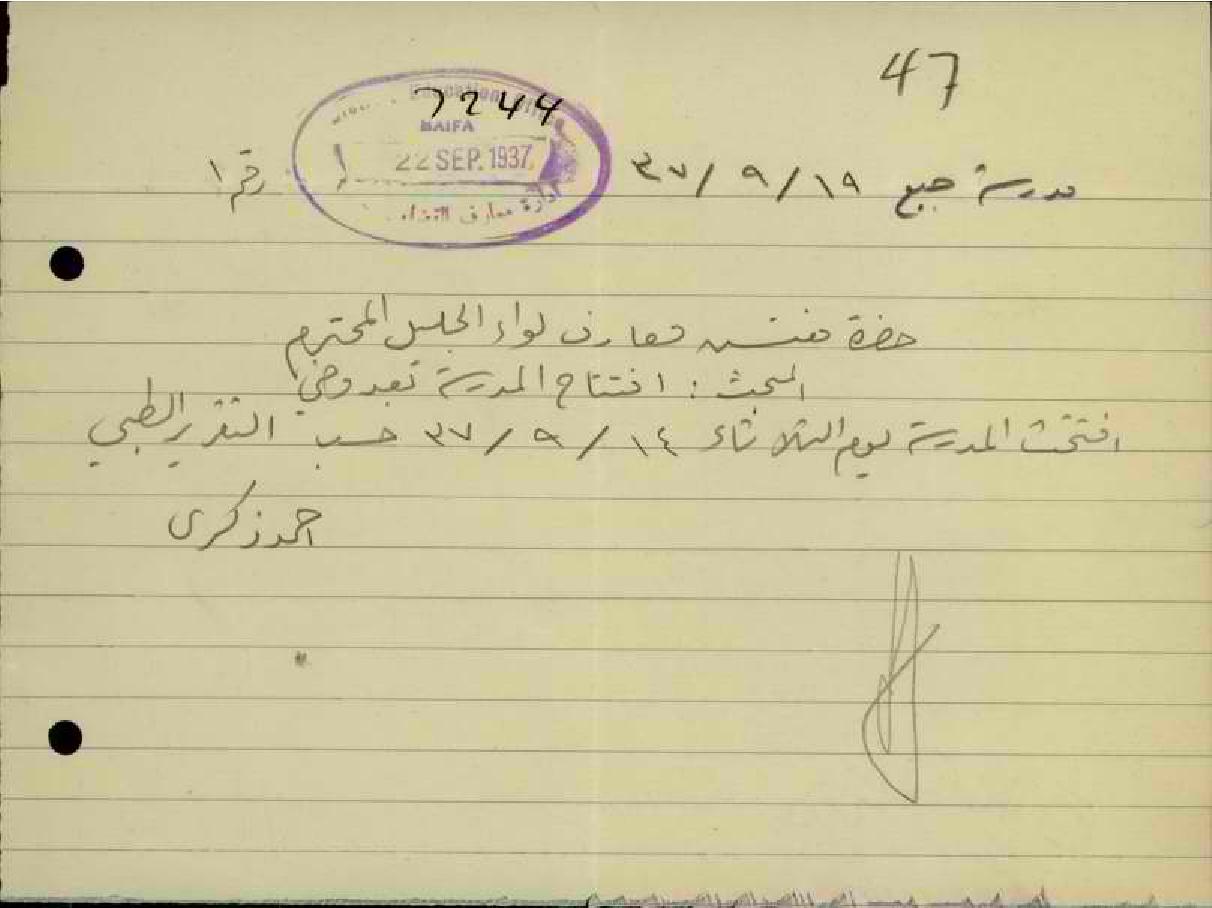 47
7244
Education Office
HAIFA
22 SEP. 1937
ادارة معارف القضاء
مدرسة جبع ١٩/ ٩/ ٣٧ رقم ١
حضرة مفتش معارف لواء الجليل المحترم
المبحث : افتتاح المدرسة
افتتحت المدرسة يوم الثلاثاء ١٤/ ٩/ ٣٧ حسب التقرير الطبي
احمد زكري